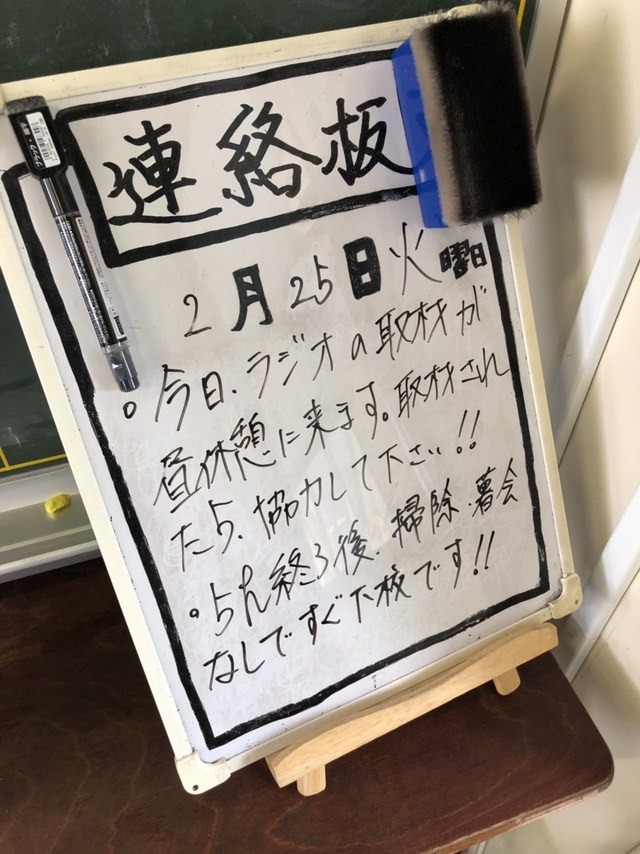 連絡板
2月25日火曜日
。今日、ラジオの取材が
昼休憩に来ます。取材され
たら、協力して下さい!!
。5h終る後、掃除、暮会
なしですぐ下校です!!